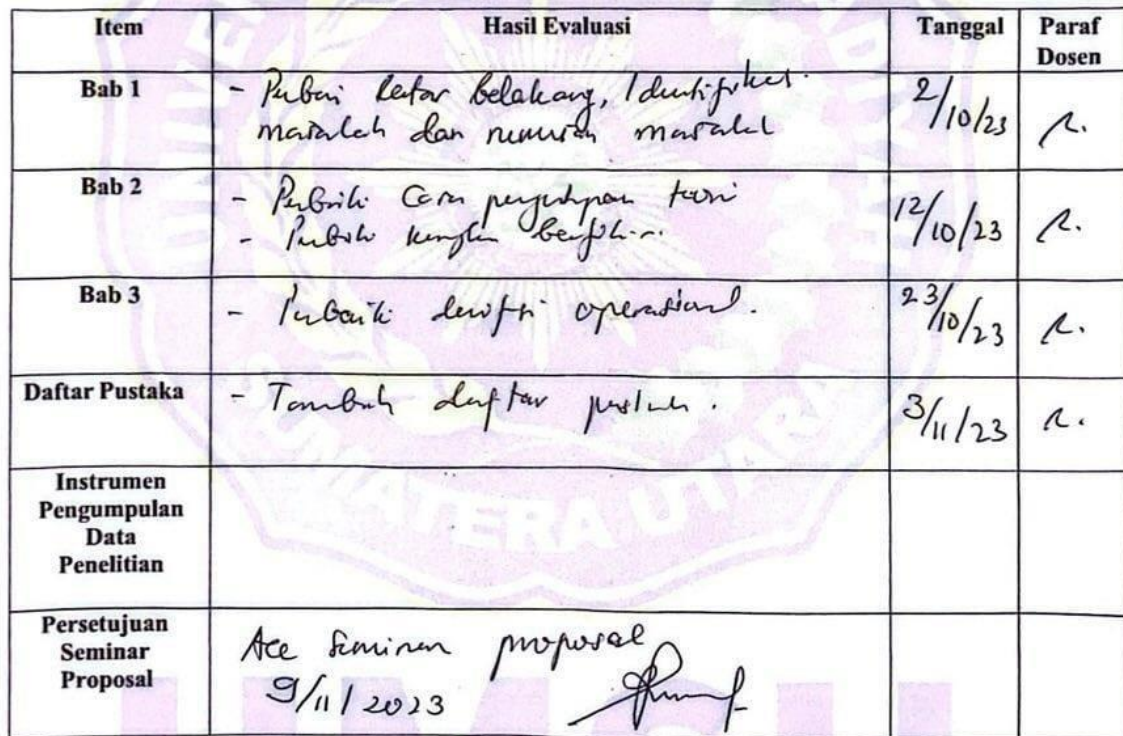 Item Hasil Evaluasi Tanggal Paraf Dosen
Bab 1 - Perbaiki latar belakang, Identifikasi 2/10/23
masalah dan rumusan masalah
Bab 2 - Perbaiki Cara pengutipan teori 12/10/23
- Perbaiki kerangka berfikir
Bab 3 - Perbaiki definisi operasional. 23/10/23
Daftar Pustaka - Tambah daftar pustaka. 3/11/23
Instrumen
Pengumpulan
Data
Penelitian
Persetujuan
Seminar
Proposal
Acc Seminar proposal
9/11/2023
SUMATERA UTARA
UMSU